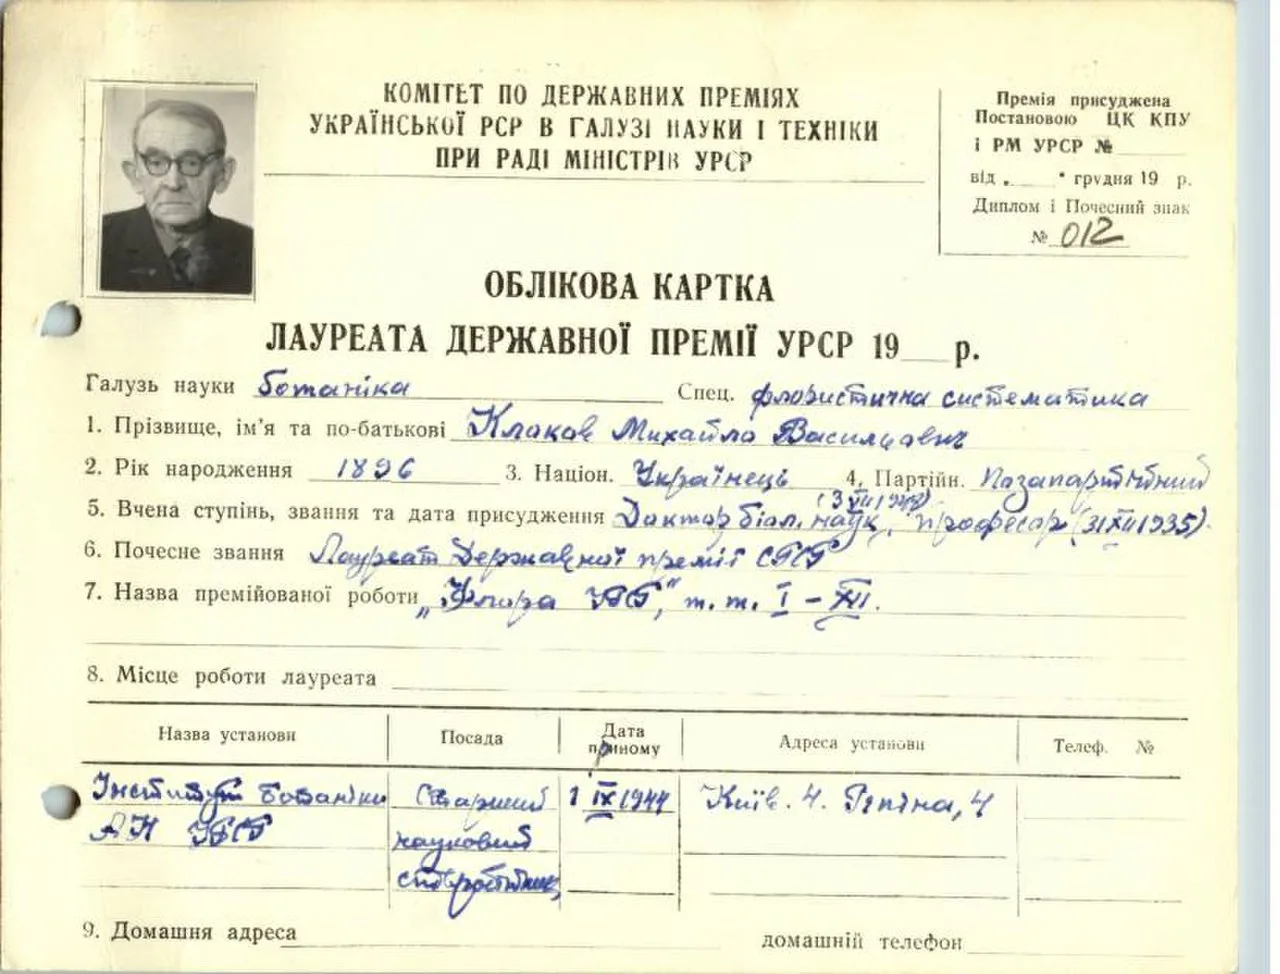 КОМІТЕТ ПО ДЕРЖАВНИХ ПРЕМІЯХ
УКРАЇНСЬКОЇ РСР В ГАЛУЗІ НАУКИ І ТЕХНІКИ
ПРИ РАДІ МІНІСТРІВ УРСР
Премія присуджена
Постановою ЦК КПУ
і РМ УРСР №
від „ " грудня 19 р.
Диплом і Почесний знак
№ 012
ОБЛІКОВА КАРТКА
ЛАУРЕАТА ДЕРЖАВНОЇ ПРЕМІЇ УРСР 19 р.
Галузь науки ботаніка Спец. флористична систематика
1. Прізвище, ім'я та по-батькові Клоков Михайло Васильович
2. Рік народження 1896 3. Націон. Українець 4. Партійн. Позапартійний
5. Вчена ступінь, звання та дата присудження Доктор біол. наук, професор (31 XII 1935).
6. Почесне звання Лауреат Державної премії СРСР
7. Назва премійованої роботи „Флора УРСР", т. т. I – XII.
8. Місце роботи лауреата
Назва установи Посада Дата прийому Адреса установи Телеф. №
Інститут ботаніки Старший 1 IX 1944 Київ. 4. Рєпіна, 4
АН УРСР науковий
співробітник
9. Домашня адреса домашній телефон